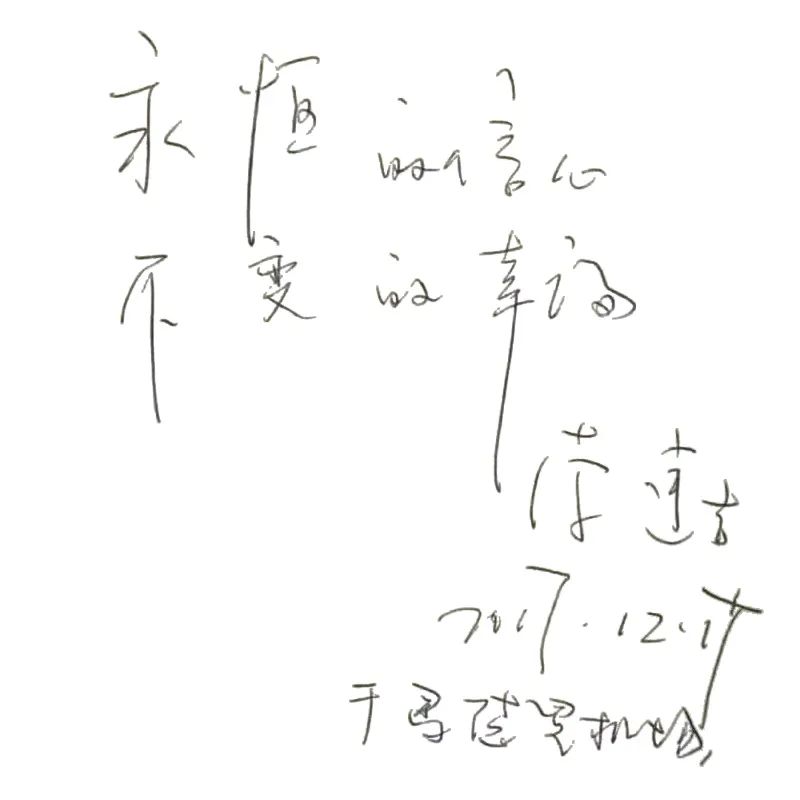 永恒的信心
不变的幸福
2017.12.17
于 机场